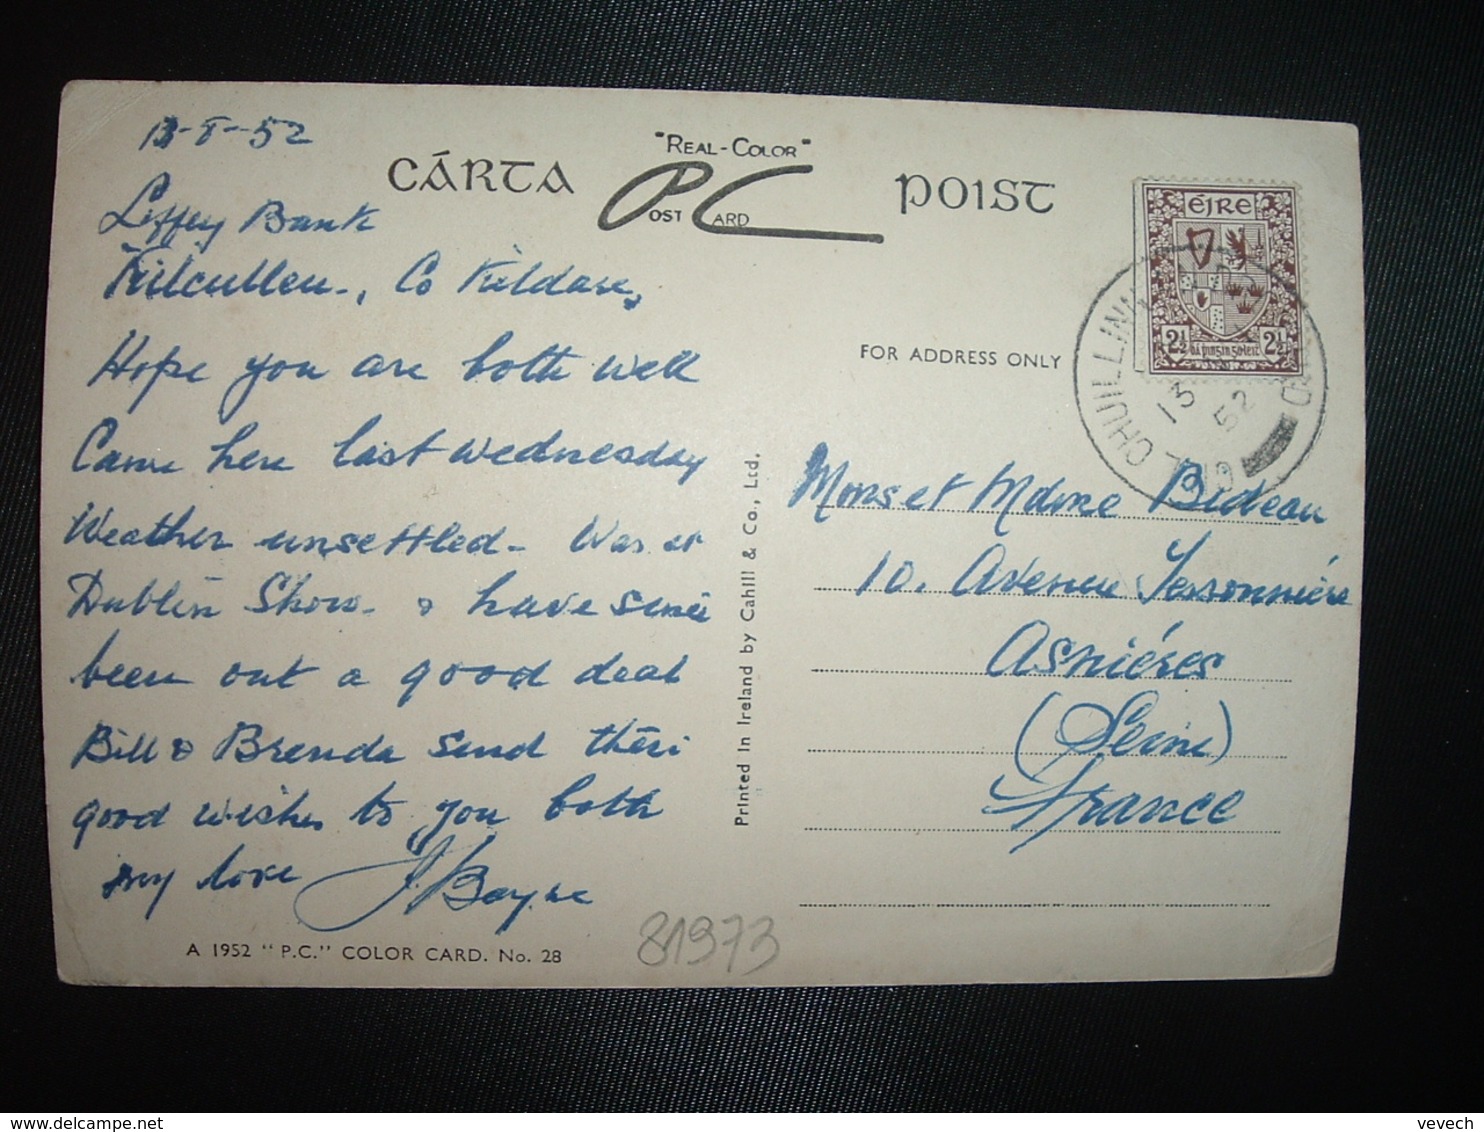 13-8-52
Liffey Bank
Kilcullen., Co Kildare,
Hope you are both well
Came here last wednesday
Weather unsettled - Was at
Dublin Show - & have since
been out a good deal
Bill & Brenda send their
good wishes to you both
my love J. Boyne
A 1952 "P.C." COLOR CARD. No. 28
CÁRTA
"REAL-COLOR"
POST CARD
POIST
FOR ADDRESS ONLY
Printed in Ireland by Cahill & Co., Ltd.
ÉIRE
2½ 2½
CILL CHUILLINN
13
52
Mons et Mdme Bideau
10. Avenue
Asniéres
(Seine)
France
81973
delcampe.net
vevech